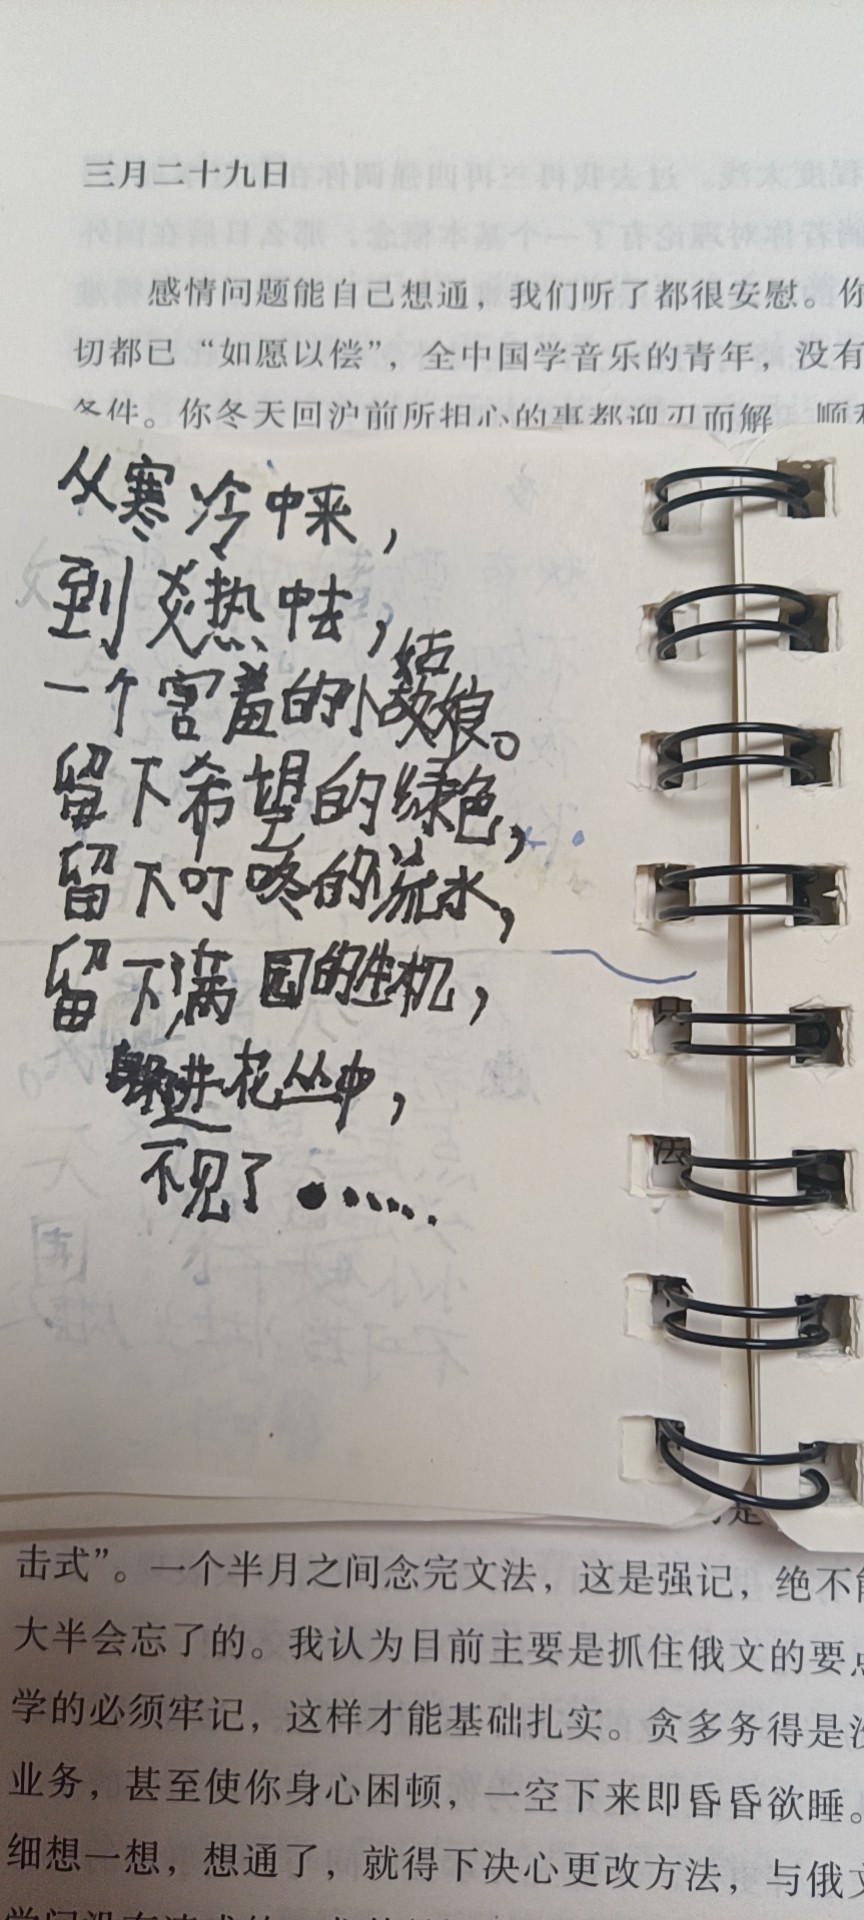 三月二十九日
感情问题能自己想通，我们听了都很安慰。你
切都已“如愿以偿”，全中国学音乐的青年，没有
条件。你冬天回沪前所担心的事都迎刃而解，顺利
从寒冷中来，
到炎热中去，
一个害羞的小姑娘。
留下希望的绿色，
留下叮咚的流水，
留下满园的生机，
躲进花丛中，
不见了……
只
法
是
击式”。一个半月之间念完文法，这是强记，绝不能
大半会忘了的。我认为目前主要是抓住俄文的要点
学的必须牢记，这样才能基础扎实。贪多务得是没
业务，甚至使你身心困顿，一空下来即昏昏欲睡。
细想一想，想通了，就得下决心更改方法，与俄文